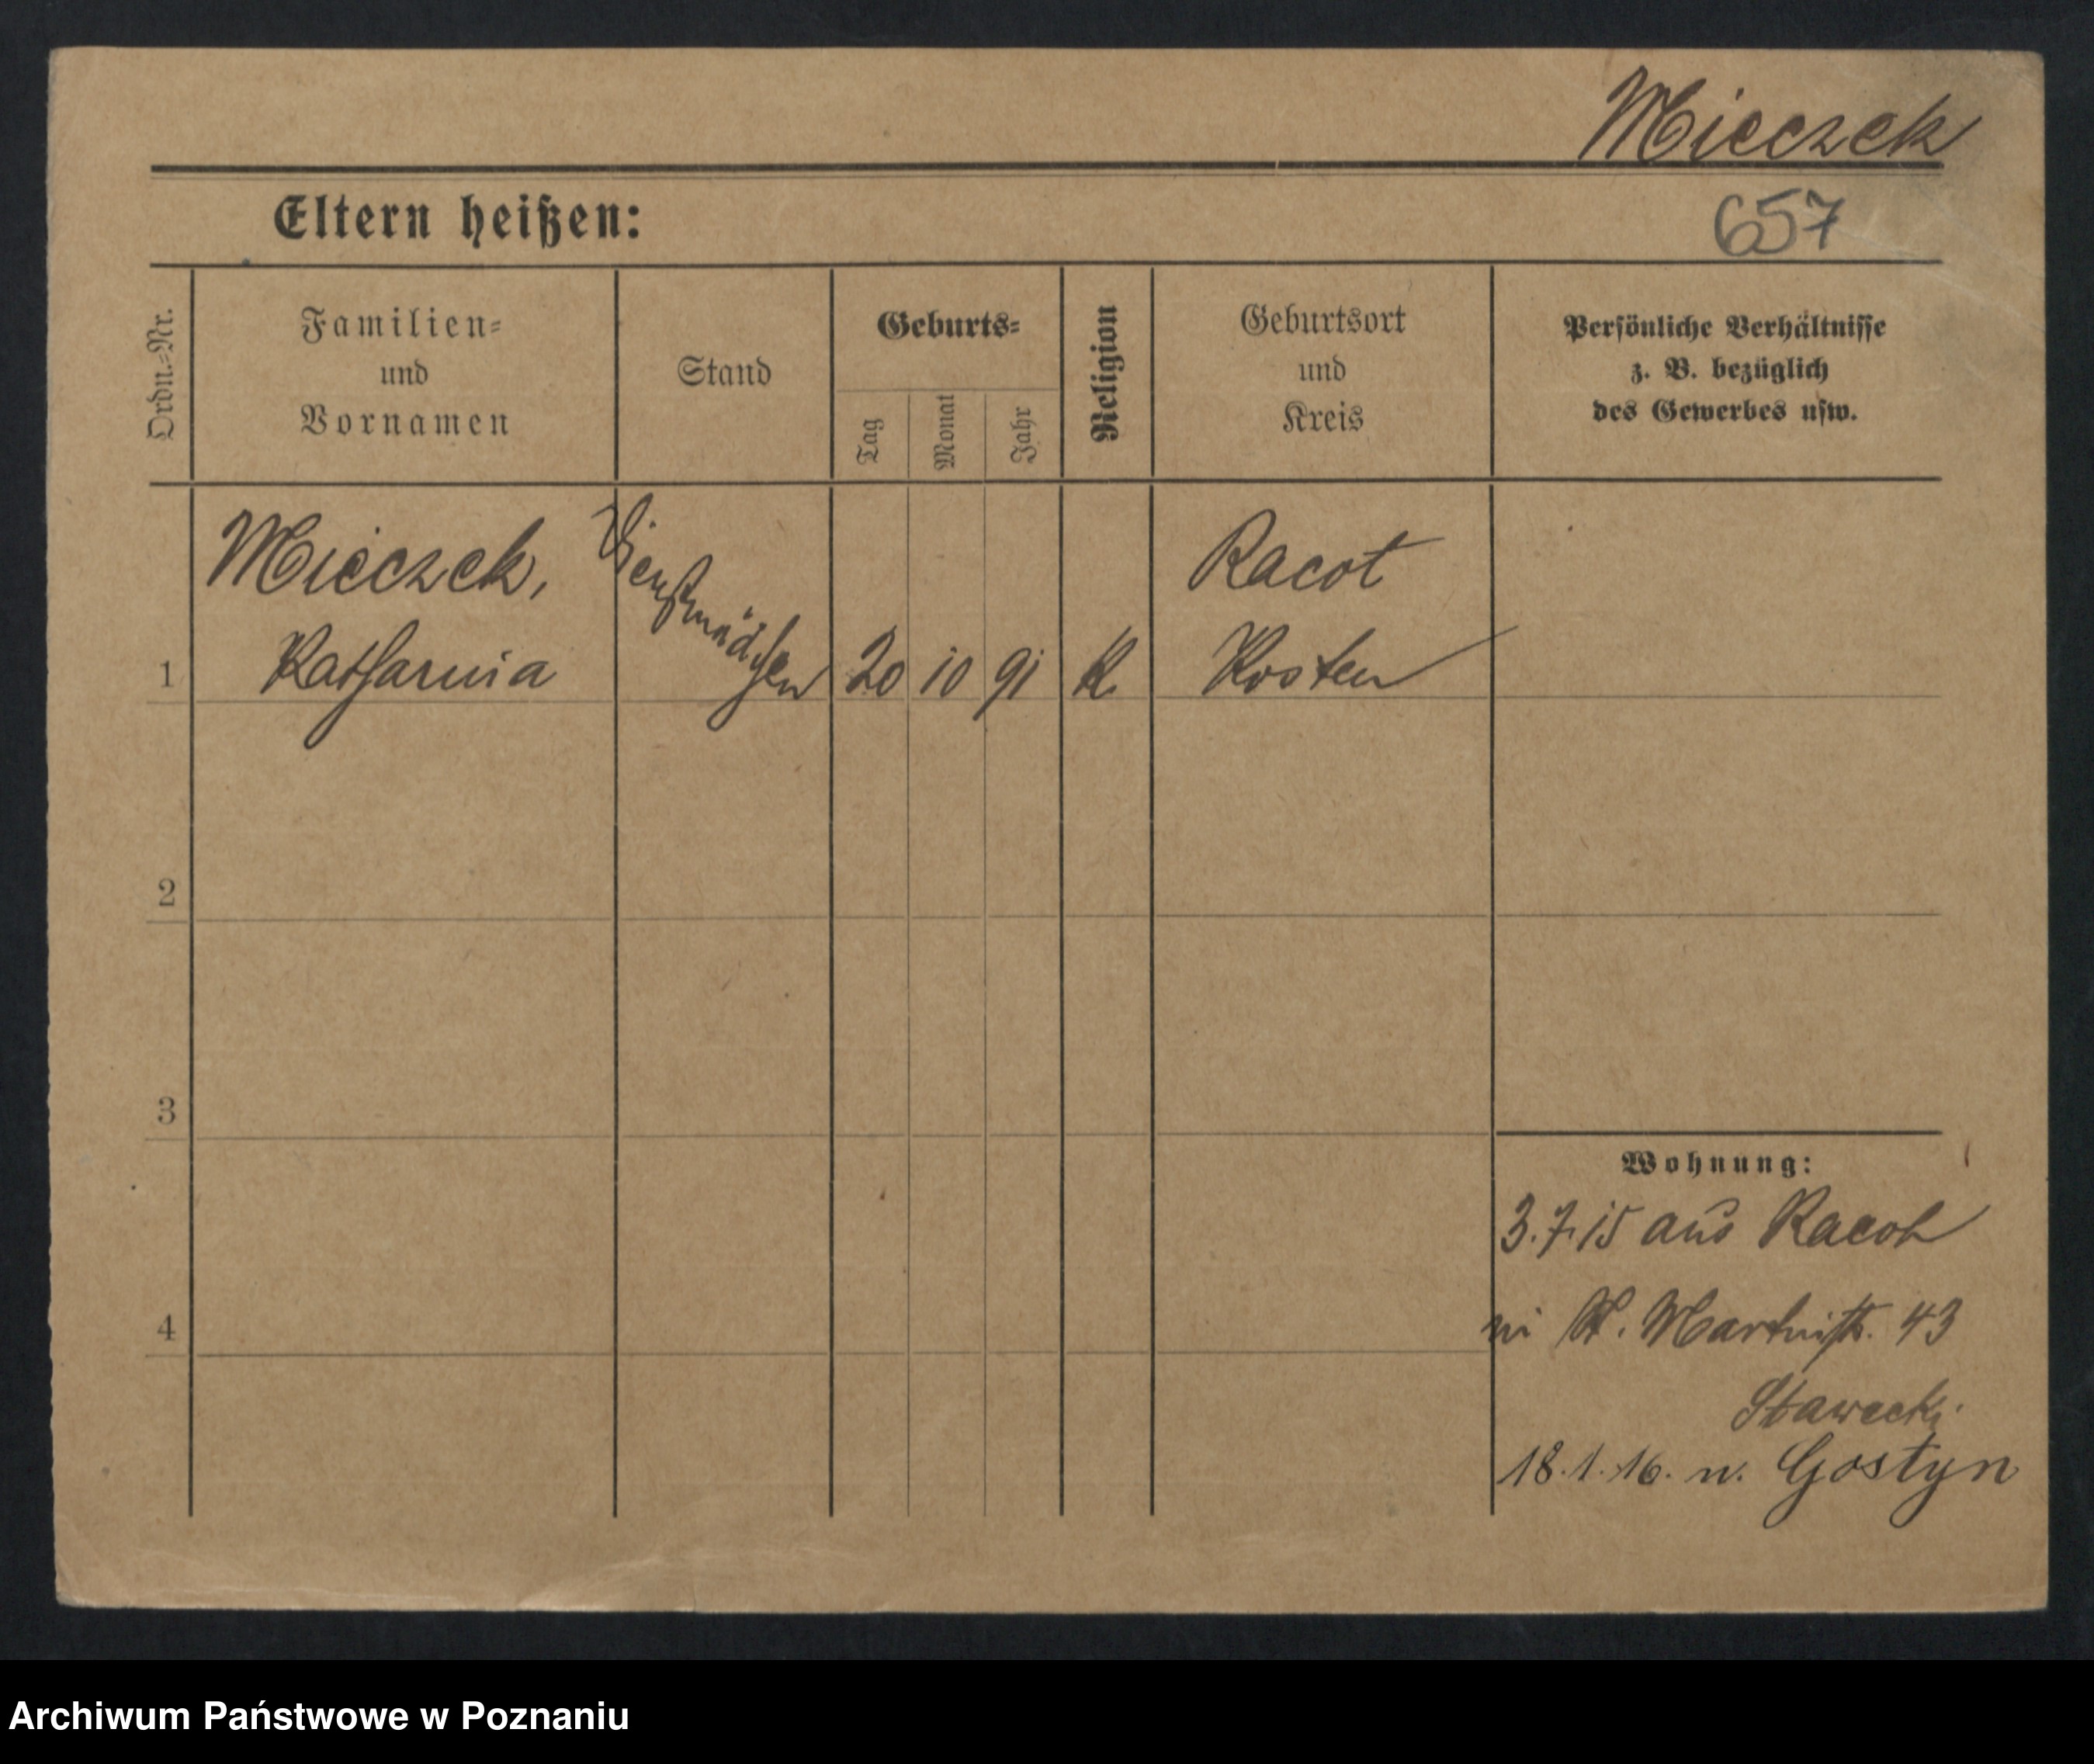 Mieczek
Eltern heißen:
657
Ordn.-Nr.
Familien-
und
Vornamen
Stand
Geburts-
Tag
Monat
Jahr
Religion
Geburtsort
und
Kreis
Persönliche Verhältnisse
z. B. bezüglich
des Gewerbes usw.
1
Mieczek,
Katharina
Dienstmädchen
20 10 91
K.
Racot
Kosten
2
3
4
Wohnung:
3.7.15 aus Racot
in St. Martinstr. 43
Stawecki
18.1.16. n. Gostyn
Archiwum Państwowe w Poznaniu